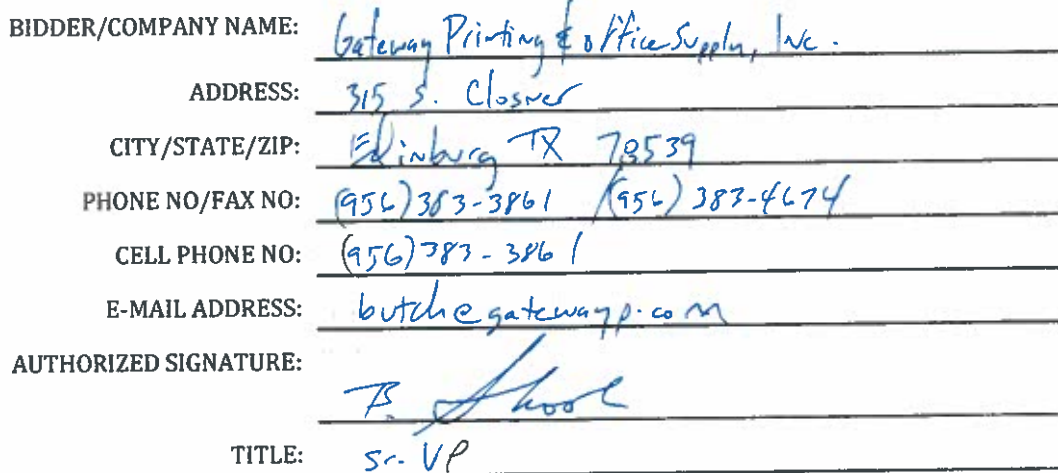 BIDDER/COMPANY NAME: Gateway Printing & Office Supply, Inc.
ADDRESS: 315 S. Closner
CITY/STATE/ZIP: Edinburg TX 78539
PHONE NO/FAX NO: (956) 383-3861 / (956) 383-4674
CELL PHONE NO: (956) 383-3861
E-MAIL ADDRESS: butch@gatewayp.com
AUTHORIZED SIGNATURE: B.
TITLE: Sr. VP